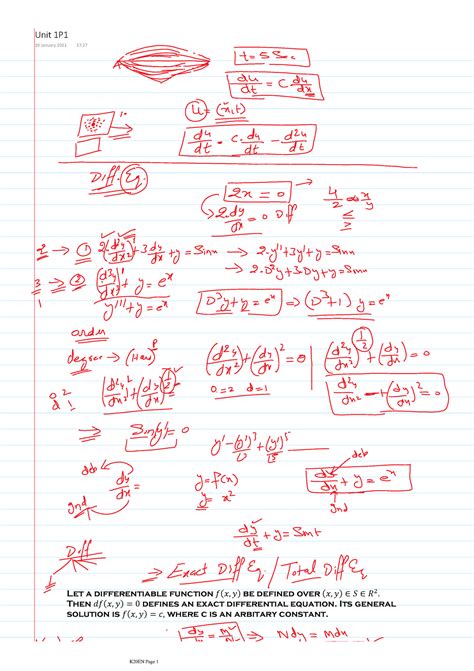 Unit 1P1
t = 5 Sec
du/dt = c. du/dx
u = (x,t)
du/dt = c. du/dt - d²u/dt
Diff. Eq.
2x = 0
4/2 x/y
2. dy/dx = 0 Diff
≤
≥
2 → ① 2(d²y/dx²)' + 3 dy/dx + y = Sinx → 2.y'' + 3y' + y = Sinx
→ 2.D²y + 3Dy + y = Sinx
3 → ② (d³y/dx³)' + y = eˣ
1
y''' + y = eˣ
D³y + y = eˣ ⇒ (D³+1) y = eˣ
order
degree → (Has)
(d²y/dx²) + (dy/dx)² = 0
(d²y/dx²)^(1/2) + (dy/dx) = 0
O = 2 d = 1
d²y/dx² + (dy/dx)² = 0
⇒ Sin(y') = 0
y' - (y')³ + (y')⁵
deb
dy/dx =
ind
y = f(x)
y = x²
deb
dy/dx + y = eˣ
ind
dy/dt + y = Smt
Diff
⇒ Exact Diff Eq / Total Diff Eq
LET A DIFFERENTIABLE FUNCTION f(x, y) BE DEFINED OVER (x, y) ∈ S ∈ R².
THEN df(x, y) = 0 DEFINES AN EXACT DIFFERENTIAL EQUATION. ITS GENERAL
SOLUTION IS f(x, y) = c, WHERE C IS AN ARBITARY CONSTANT.
⇒ Ndy = Mdx
K20EN Page 1